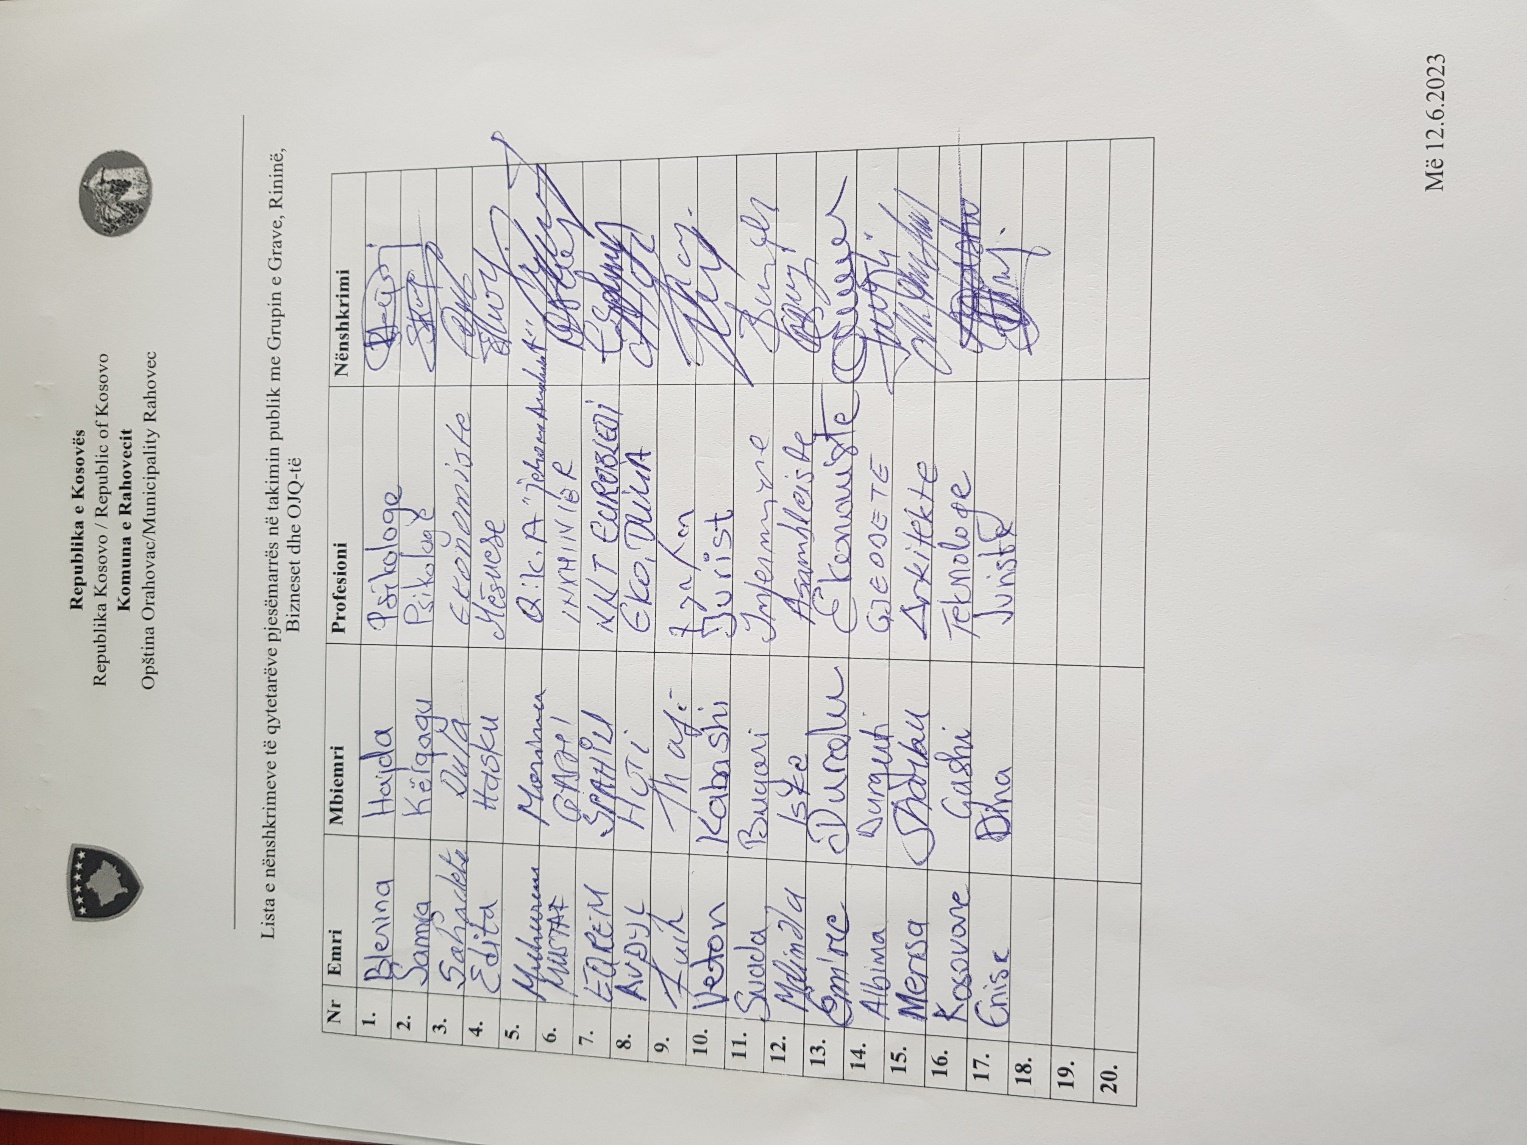 Republika e Kosovës
Republika Kosovo / Republic of Kosovo
Komuna e Rahovecit
Opština Orahovac/Municipality Rahovec
Lista e nënshkrimeve të qytetarëve pjesëmarrës në takimin publik me Grupin e Grave, Rininë,
Bizneset dhe OJQ-të
Nr Emri Mbiemri Profesioni Nënshkrimi
1. Blerina Hajda Psikologe
2. Samka Psikologe
3. Sahadete Dula Ekonomiste
4. Edita Hasku Mësuese
5. Muharrem Q.i.k.A
6. MUSTAF GASHI INXHINIER
7. EQREM SPAHIU NNT
8. AVDYL HOTI
9. Thaçi
10. Veton Kabashi Jurist
11. Suada Bugari Infermjere
12. Melinda Asambleiste
13. Emine Duraku Ekonomiste
14. Albina Durguti GJEODETE
15. Mensa Arkitekte
16. Kosovare Gashi Teknologe
17. Enise Dina Juriste
18.
19.
20.
Më 12.6.2023